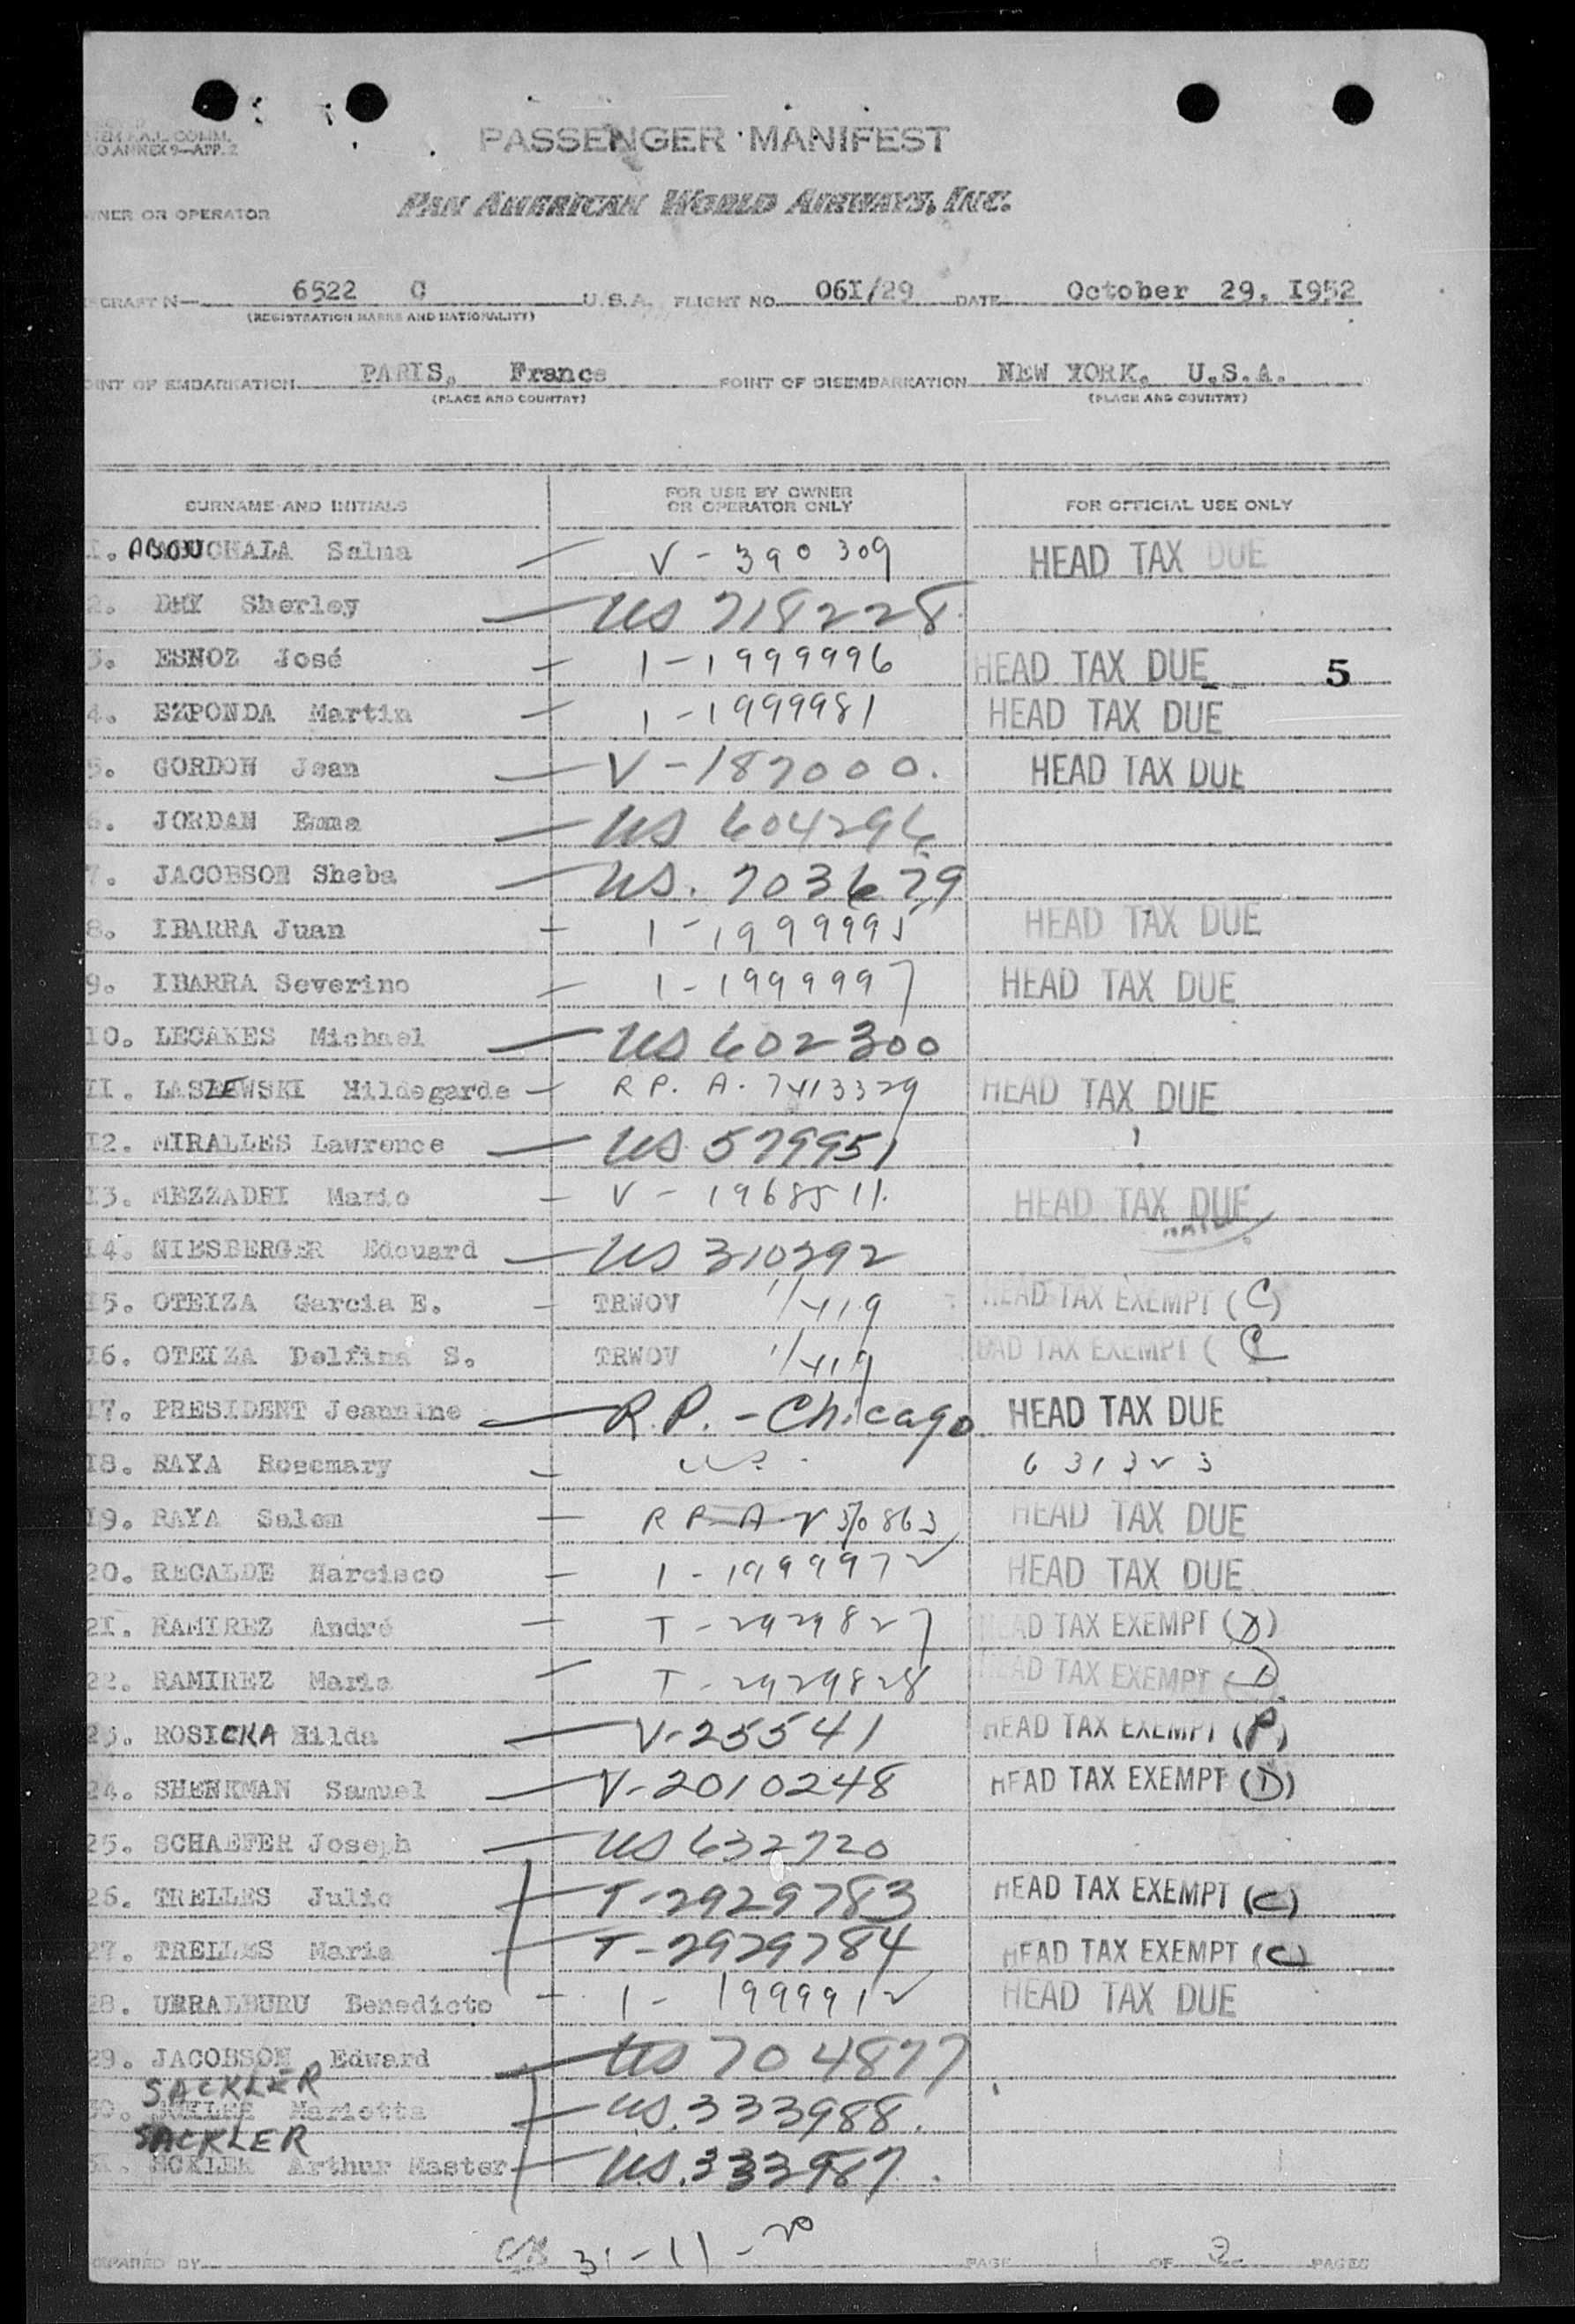 TEM F.A.L. COMM.
O ANNEX 9—APP. 2
PASSENGER MANIFEST
NER OR OPERATOR PAN AMERICAN WORLD AIRWAYS, INC.
CRAFT N— 6522 C U.S.A. FLIGHT NO. 06I/29 DATE October 29, I952
(REGISTRATION MARKS AND NATIONALITY)
INT OF EMBARKATION PARIS, France POINT OF DISEMBARKATION NEW YORK, U.S.A.
(PLACE AND COUNTRY) (PLACE AND COUNTRY)
SURNAME AND INITIALS FOR USE BY OWNER OR OPERATOR ONLY FOR OFFICIAL USE ONLY
I. ABOUCHALA Salma — V - 390309 HEAD TAX DUE
2. DHY Sherley — US 718228
3. ESNOZ José — 1-1999996 HEAD TAX DUE 5
4. EZPONDA Martin — 1-1999981 HEAD TAX DUE
5. GORDON Jean — V-187000. HEAD TAX DUE
6. JORDAN Emma — US 604296
7. JACOBSON Sheba — US. 703679
8. IBARRA Juan — 1-1999995 HEAD TAX DUE
9. IBARRA Severino — 1-1999997 HEAD TAX DUE
I0. LECAKES Michael — US 602300
II. LASZEWSKI Hildegarde — R P. A. 7413329 HEAD TAX DUE
I2. MIRALLES Lawrence — US 579951
I3. MEZZADRI Mario — V - 1968511. HEAD TAX DUE
I4. NIESBERGER Edouard — US 310292
I5. OTEIZA Garcia E. — TRWOV 1/419 HEAD TAX EXEMPT (C)
I6. OTEIZA Delfina S. TRWOV 1/419 HEAD TAX EXEMPT (C
I7. PRESIDENT Jeannine — R.P. - Chicago HEAD TAX DUE
I8. RAYA Rosemary — US. 631323
I9. RAYA Salem — R P A V 370863 HEAD TAX DUE
20. RECALDE Narcisco — 1-1999972 HEAD TAX DUE
2I. RAMIREZ André — T-2929827 HEAD TAX EXEMPT (D)
22. RAMIREZ Maria — T-2929828 HEAD TAX EXEMPT (D)
23. ROSICKA Hilda — V-25541 HEAD TAX EXEMPT (P)
24. SHENKMAN Samuel — V-2010248 HEAD TAX EXEMPT (D)
25. SCHAEFER Joseph — US 632720
26. TRELLES Julio — T-2929783 HEAD TAX EXEMPT (C)
27. TRELLES Maria — T-2929784 HEAD TAX EXEMPT (C)
28. URRALBURU Benedicto — 1-1999912 HEAD TAX DUE
29. JACOBSON Edward — US 704877
SACKLER
30. Marietta — US. 333988.
SACKLER
Arthur Master — US. 333987.
PREPARED BY 31-11-20 PAGE 1 OF 2 PAGES